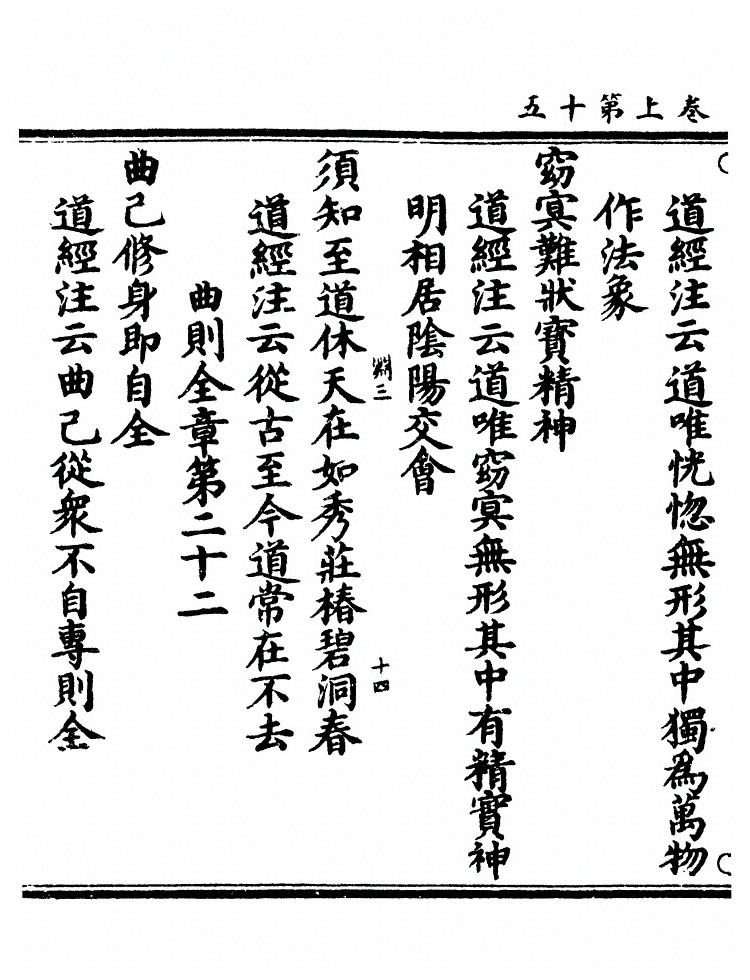 卷上第十五
道經注云道唯恍惚無形其中獨為萬物
作法象
窈冥難狀寶精神
道經注云道唯窈冥無形其中有精實神
明相居陰陽交會
淵三
十四
須知至道休天在如秀莊椿碧洞春
道經注云從古至今道常在不去
曲則全章第二十二
曲己修身即自全
道經注云曲己從衆不自專則全